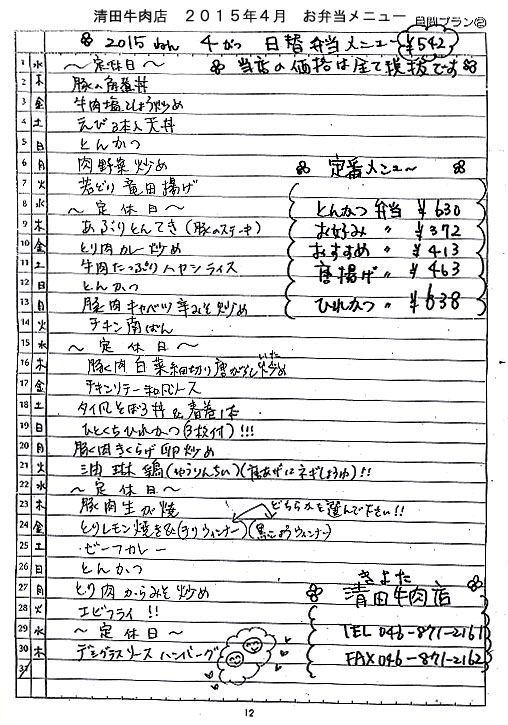 清田牛肉店 2015年4月 お弁当メニュー
2015 ねん 4がつ 日替弁当メニュー ¥542
1 水 ～定休日～ 当店の価格は全て税抜です
2 木 豚の角煮丼
3 金 牛肉塩こしょう炒め
4 土 えび3本入天丼
5 日 とんかつ
6 月 肉野菜炒め
定番メニュー
7 火 若どり竜田揚げ
8 水 ～定休日～
とんかつ弁当 ¥630
9 木 あぶりとんてき(豚のステーキ)
お好み 〃 ¥372
10 金 とり肉カレー炒め
おすすめ 〃 ¥413
11 土 牛肉たっぷりハヤシライス
唐揚げ 〃 ¥463
12 日 とんかつ
13 月 豚肉キャベツ辛みそ炒め
ひれかつ 〃 ¥638
14 火 チキン南ばん
15 水 ～定休日～
16 木 豚肉白菜細切り唐がらし炒め
17 金 チキンソテー和風ソース
18 土 タイ風そぼろ丼&春巻1本
19 日 ひとくちひれかつ(3枚付)!!!
20 月 豚肉きくらげ卵炒め
21 火 油琳鶏(ゆうりんちい)(唐あげにネギしょうゆ)!!
22 水 ～定休日～
23 木 豚肉生が焼 どちらかを選んで下さい!!
24 金 とりレモン焼き&(チリウィンナー)(黒こしょうウィンナー)
25 土 ビーフカレー
26 日 とんかつ
27 月 とり肉からみそ炒め
きよた
清田牛肉店
28 火 エビフライ!!
29 水 ～定休日～
TEL 046-871-2161
30 木 デミグラスソースハンバーグ
FAX 046-871-2162
31
12